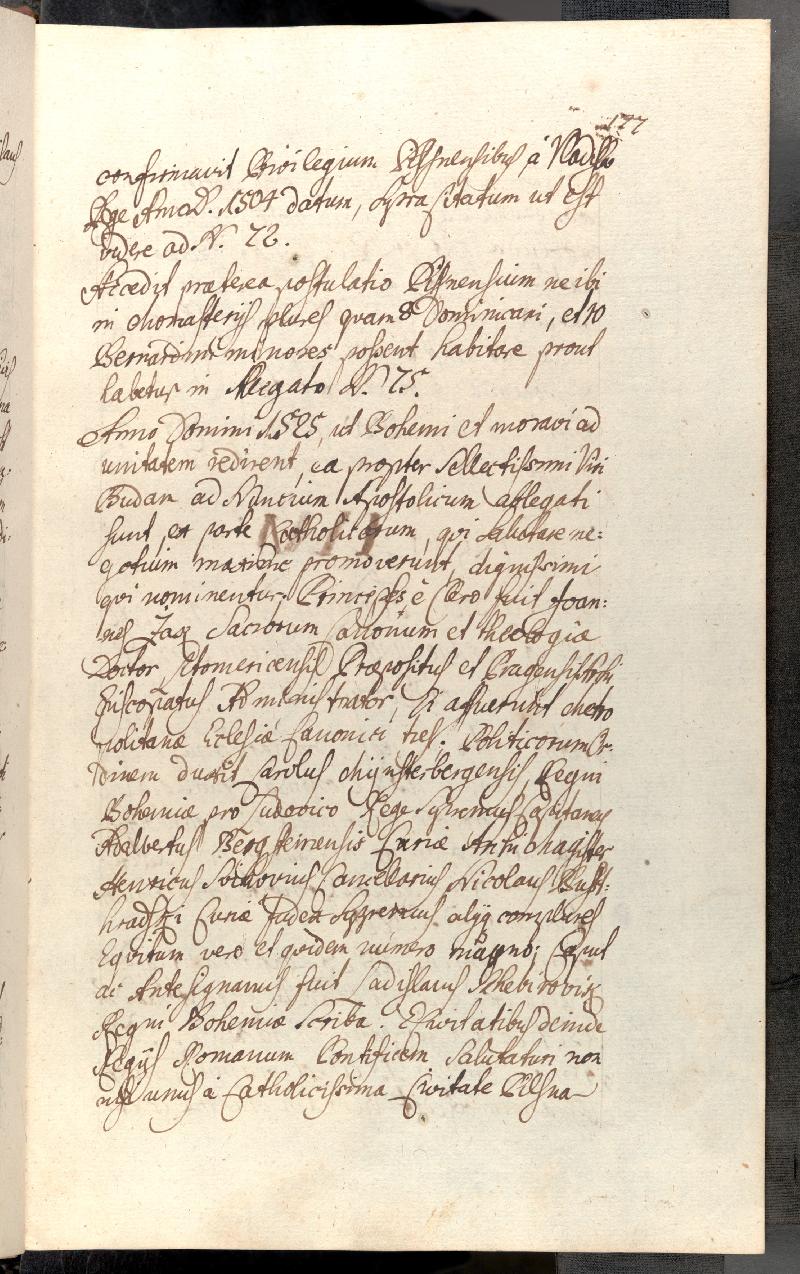 177
confirmavit Privilegium Pilsnensibus á Vladislao
Rege Anno D. 1504 datum, supra citatum ut est
videre ad N. 22.
Accedit præterea postulatio Pilsnensium ne ibi
in Monasterijs plures quam 8 Dominicani, et 10
Bernardini minores possent habitare prout
habetur in Allegato N. 75.
Anno Domini 1525, ut Bohemi et moravi ad
unitatem redirent, ea propter Sellectissimi Viri
Budam ad Nuncium Apostolicum ablegati
sunt, ex parte Catholicorum, qvi salutare ne:
gotium maxime promoverunt, dignissimi
qvi nominentur. Princeps é Clero fuit Joan:
nes Zak Sacrorum Canonum et Theologiæ
Doctor, Litomericensis Præpositus et Pragensis Archi
Episcopatus Administrator, Ei affuerunt Metro
politanæ Eclesiæ Canonici tres. Politicorum Or:
dinem duxit Carolus Mijnsterbergensis Regni
Bohemiæ pro Ludovico Rege Supremus Capitaneus
Adalbertus Bergsteinensis Curiæ
Henricus Cancellarius Nicolaus
Curiæ Judex Supremus alijq complures
Eqvitum vero et qvidem numero magno; Caput
ac Antesignanus fuit Ladislaus
Regni Bohemiæ Scriba. E Civitatibus deinde
Regijs Romanum Pontificem Salutaturi non
nisi unus á Catholicissima Civitate Pilsna